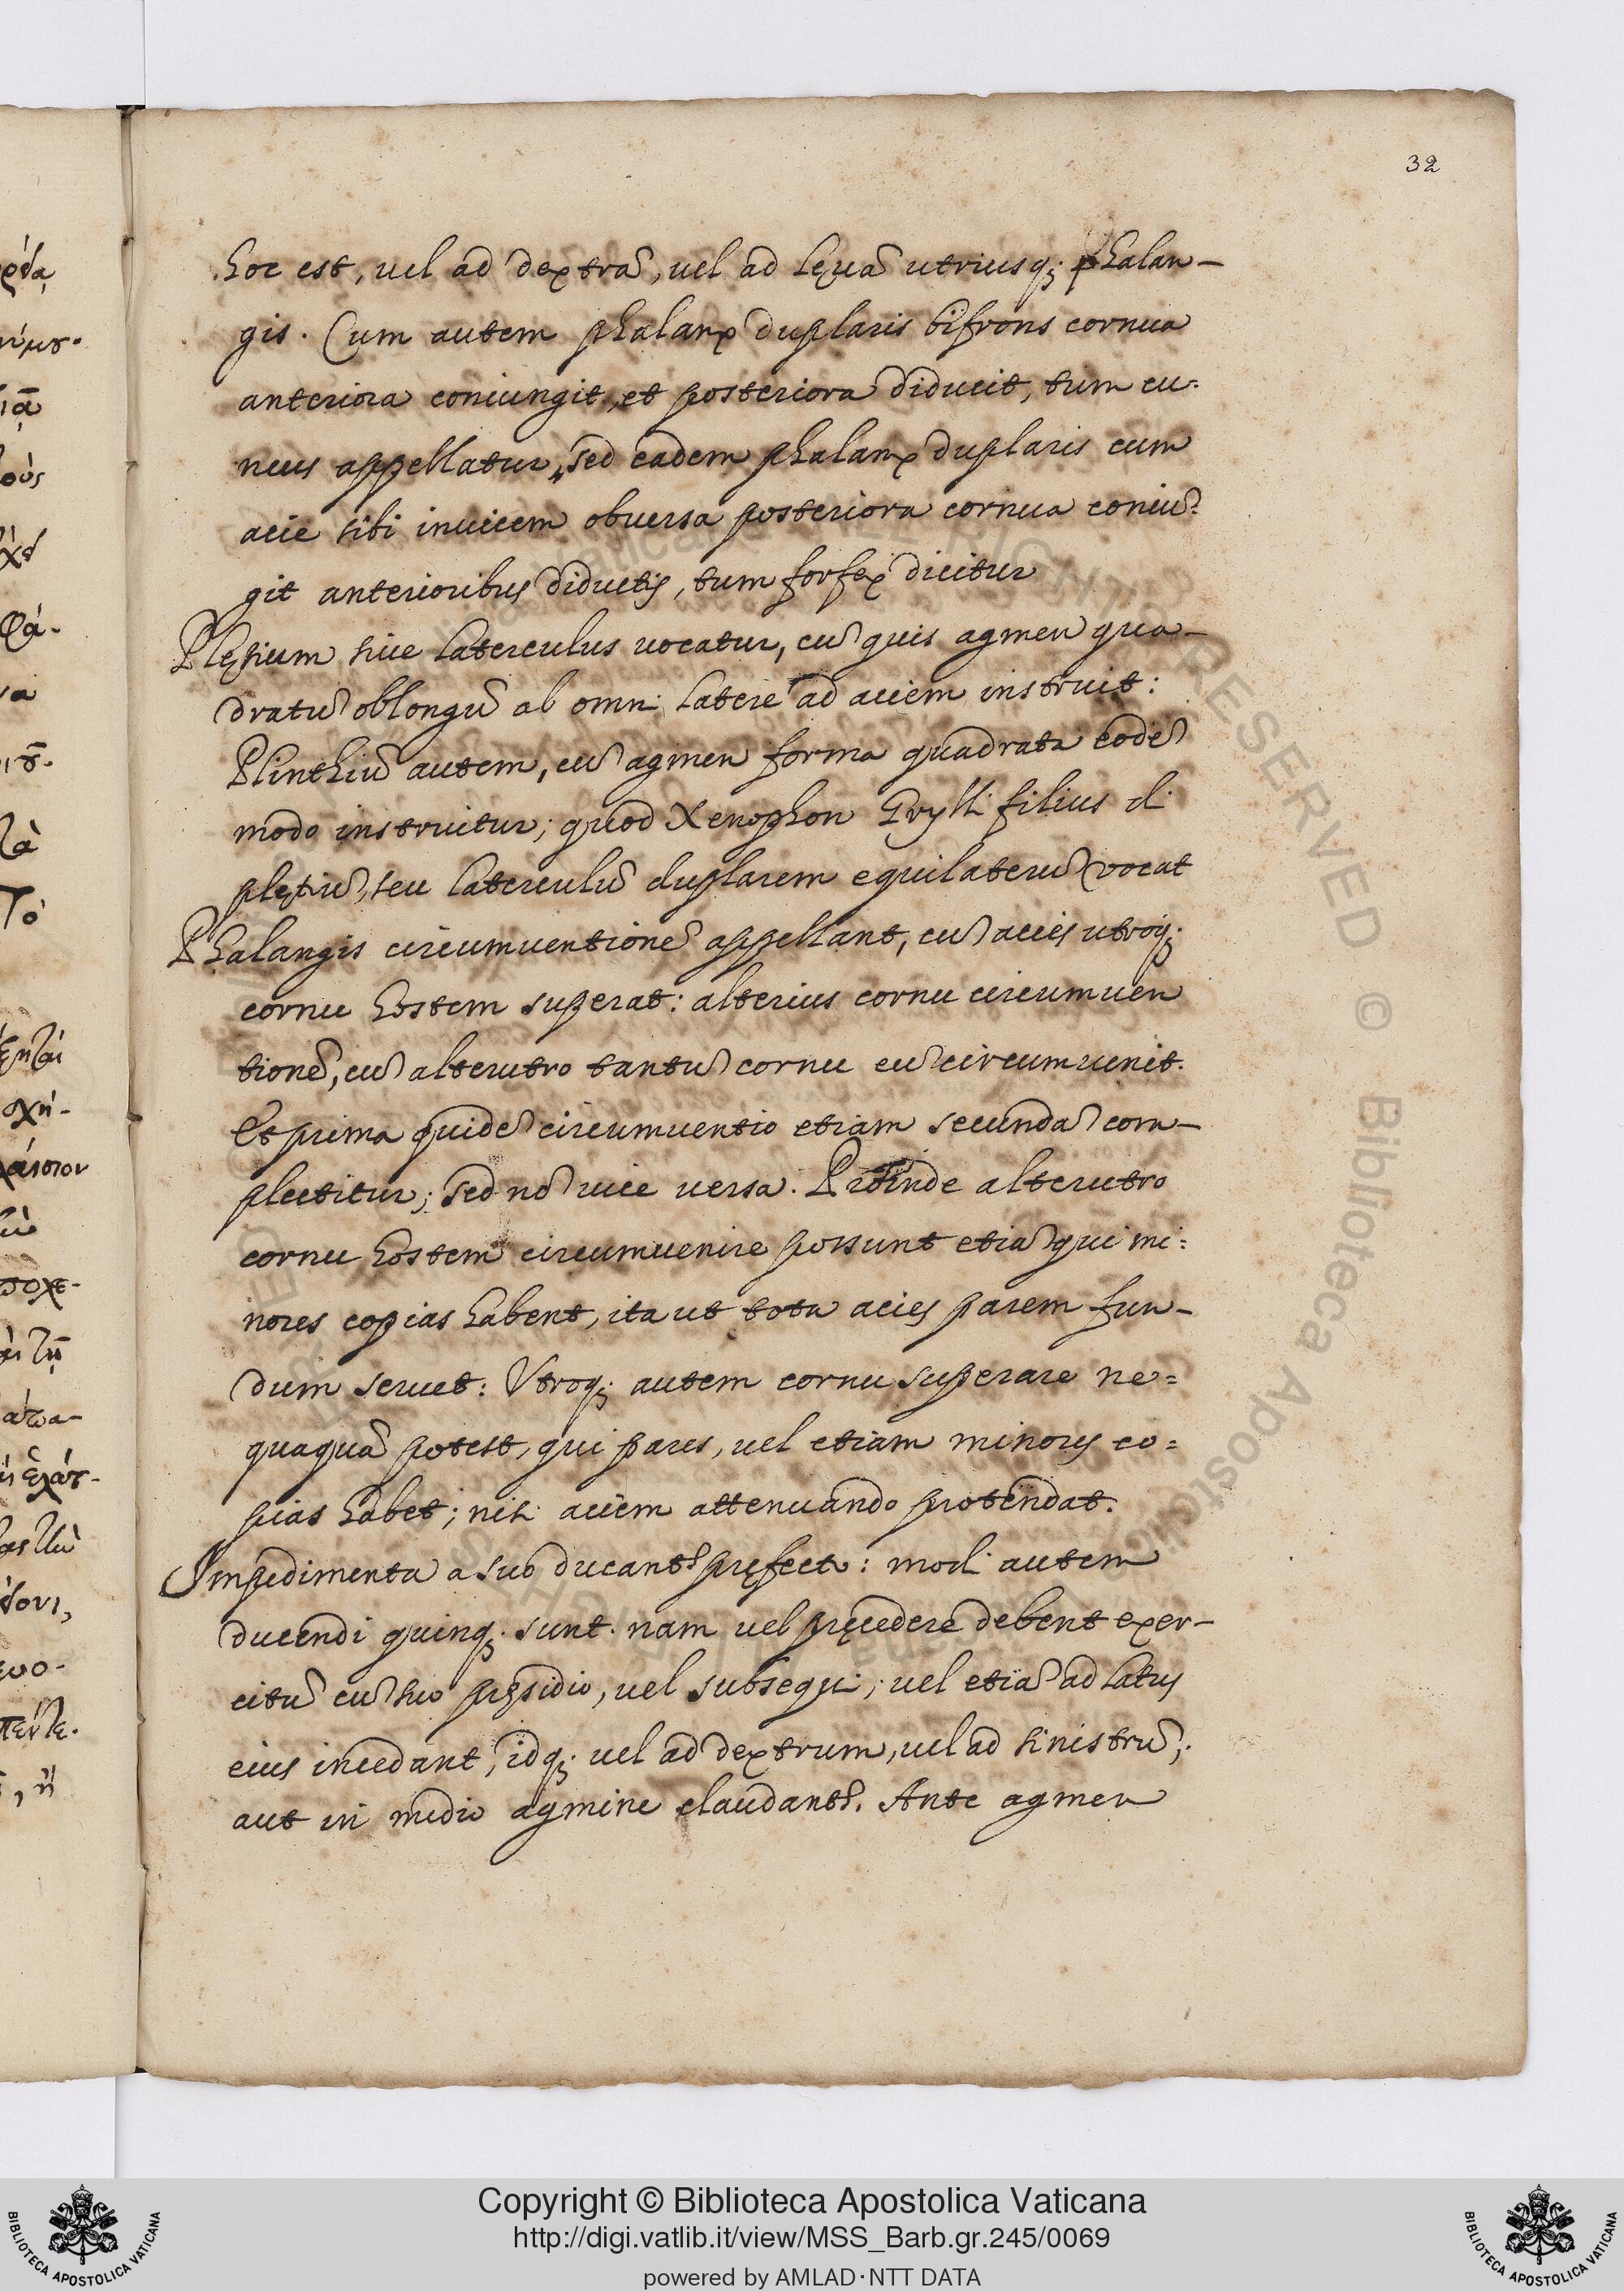 32
hoc est, uel ad dextrã, uel ad lęuã utriusq; phalan-
gis. Cum autem phalanx duplaris bifrons cornua
anteriora coniungit, et posteriora diducit, tum cu=
neus appellatur, sed eadem phalanx duplaris cum
acie sibi inuicem obuersa posteriora cornua coniũ=
git anterioribus diductis, tum forfex dicitur
Plęsium siue laterculus uocatur, cũ quis agmen qua-
dratũ oblongũ ab omni latere ad aciem instruit:
Plinthiũ autem, cũ agmen forma quadrata eodẽ
modo instruitur; quod Xenophon Grylli filius di
plęsiũ, seu laterculũ duplarem equilaterũ vocat
Phalangis circumuentionẽ appellant, cũ acies utroq;
cornu hostem superat: alterius cornu circumuen
tionẽ, cũ alterutro tantũ cornu eũ circumuenit.
Et prima quidẽ circumuentio etiam secundã com-
plectitur; sed nõ uice uersa. Proinde alterutro
cornu hostem circumuenire possunt etiã qui mi=
nores copias habent, ita ut tota acies parem fun-
dum seruet: Vtroq; autem cornu superare ne=
quaquã potest, qui pares, uel etiam minores co=
pias habet; nisi aciem attenuando protendat.
Impedimenta a suo ducantr pręfecto: modi autem
ducendi quinq; sunt. nam uel pręcedere debent exer-
citũ cũ suo pręsidio, uel subsequi; uel etiã ad latus
eius incedant, idq; uel ad dextrum, uel ad sinistrũ;
aut in medio agmine claudantr. Ante agmen
ρός
Τὸ
σχή-
άτω-
δονι,
πέντε.
, ἢ
BIBLIOTECA APOSTOLICA VATICANA
Copyright © Biblioteca Apostolica Vaticana
http://digi.vatlib.it/view/MSS_Barb.gr.245/0069
powered by AMLAD·NTT DATA
BIBLIOTECA APOSTOLICA VATICANA